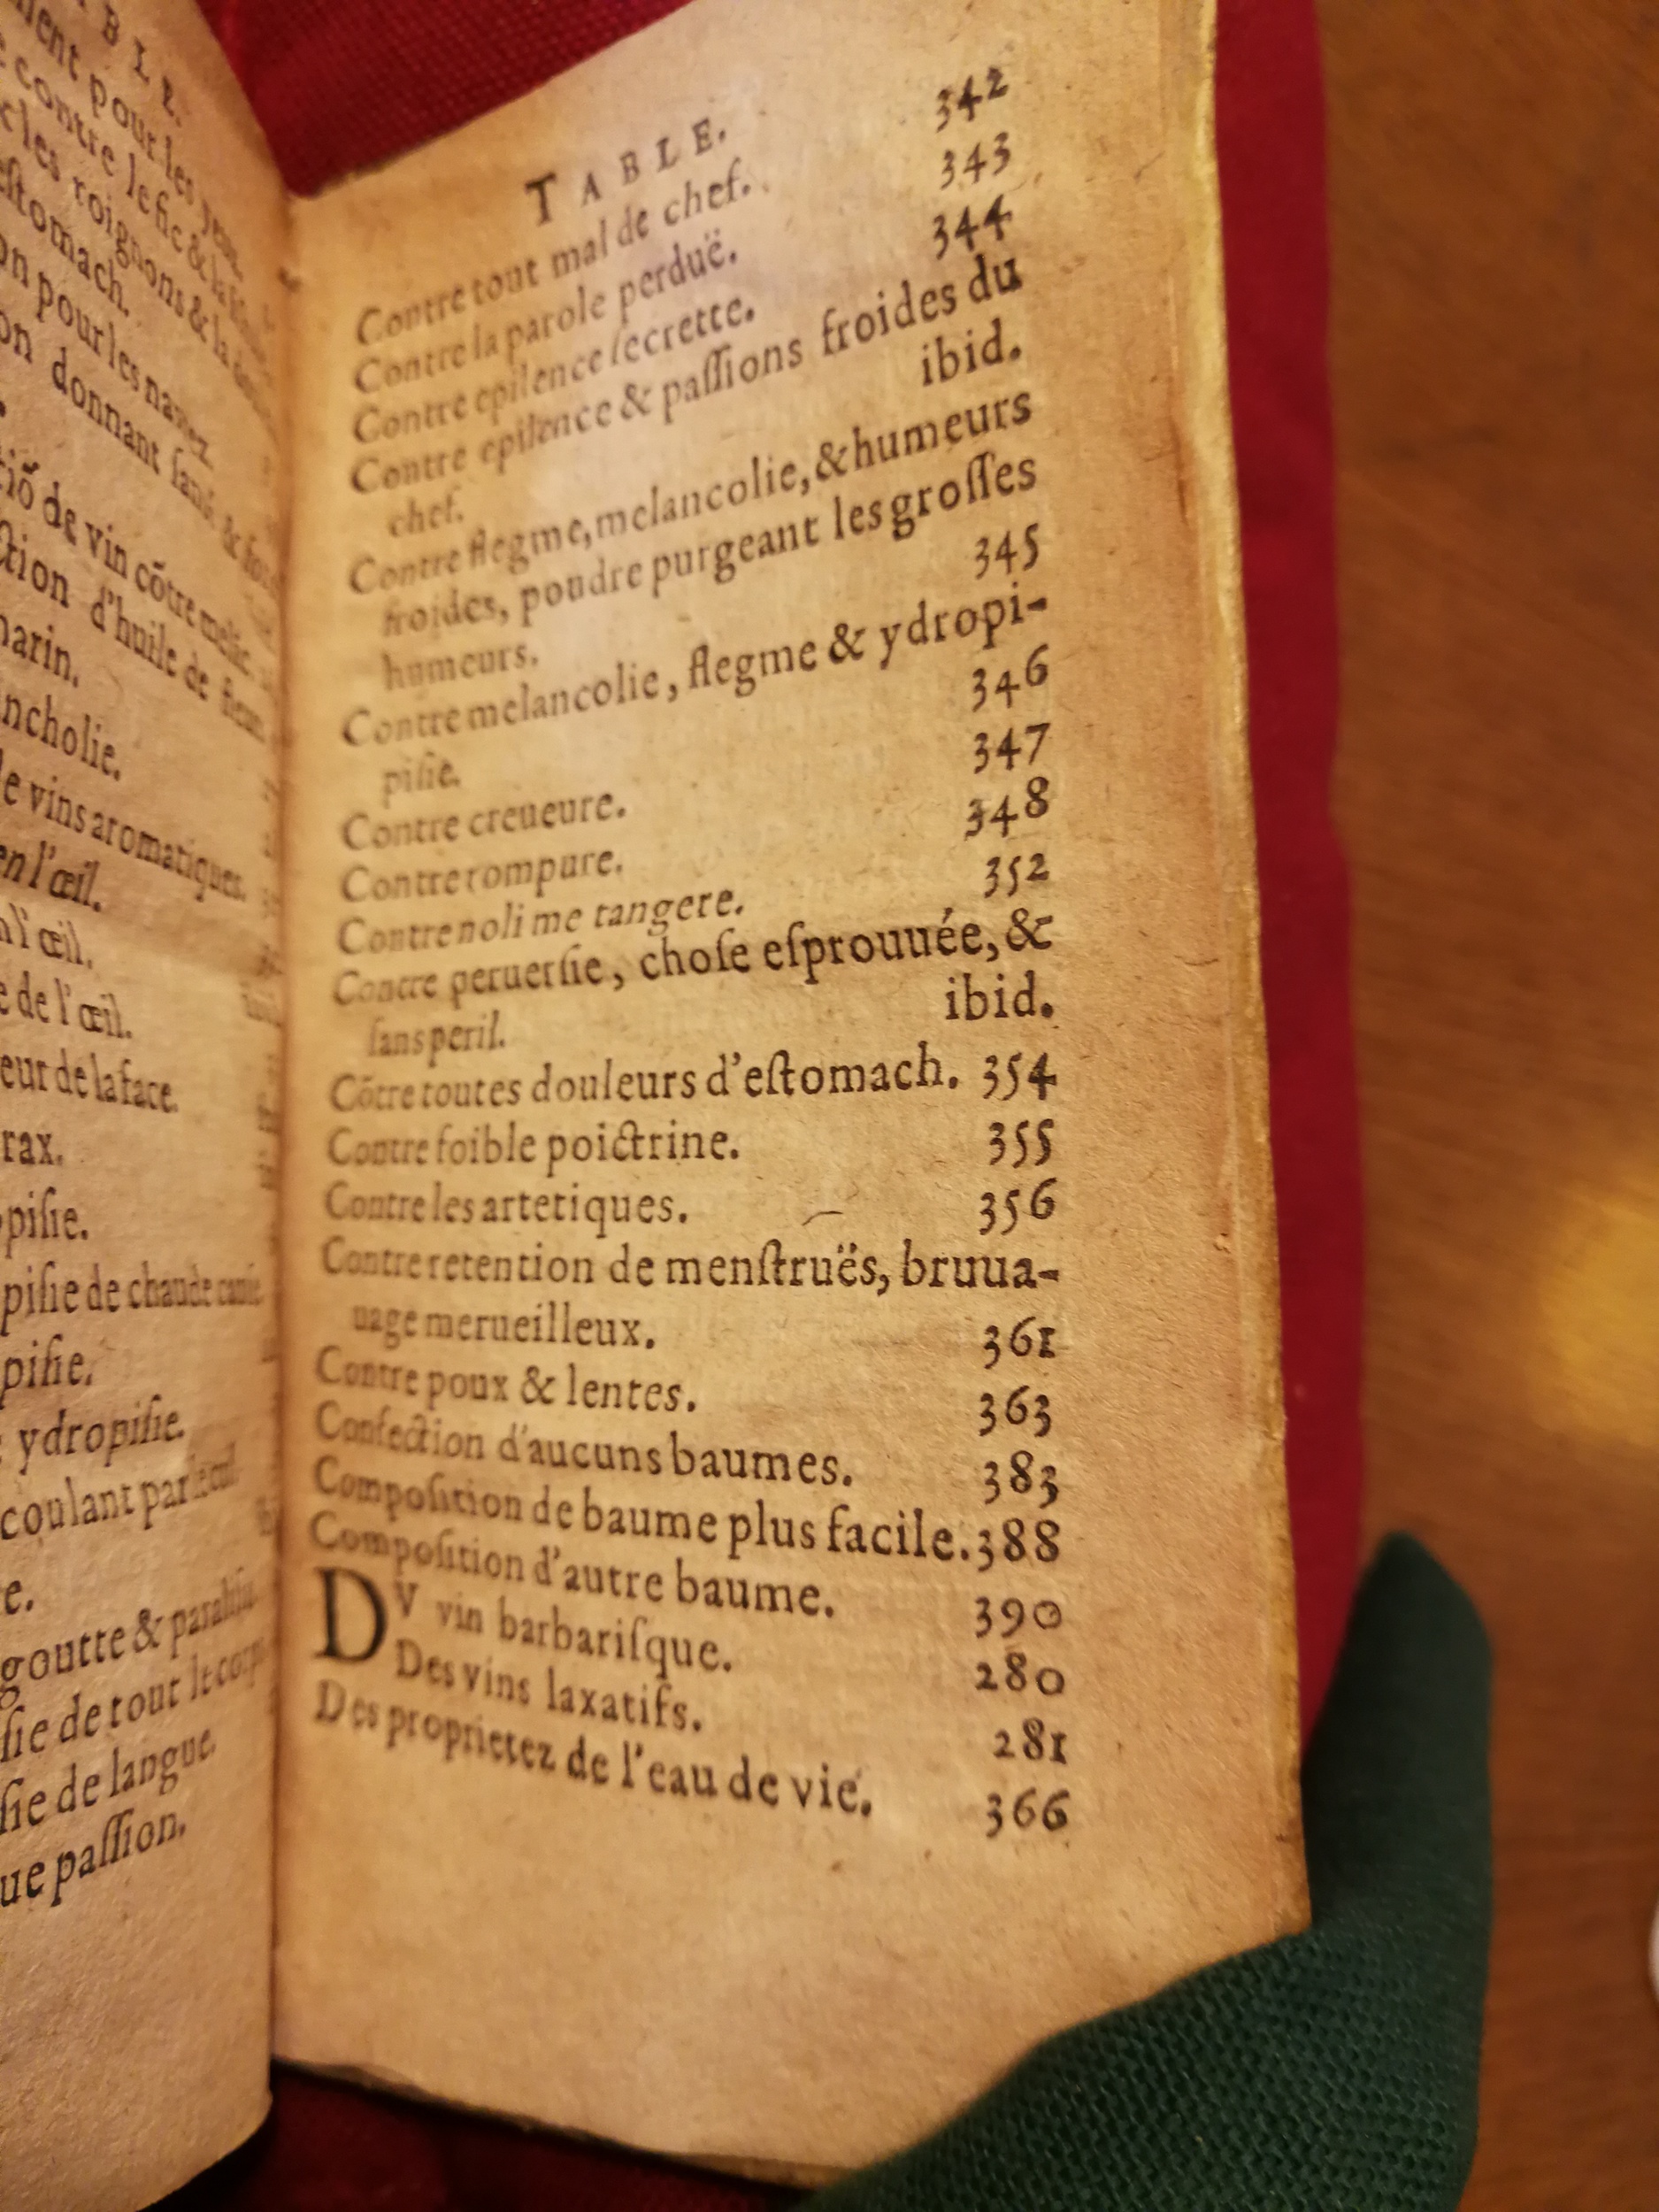 B L E.
ent pour les yeux.
contre le fic & la
les roignons & la
estomach.
on pour les
on donnant santé &
tiõ de vin cõtre
ction d'huile de
narin.
ncholie.
e vins aromatiques.
en l'œil.
n l'œil.
e de l'œil.
eur de la face.
rax.
pisie.
pisie de chaude
pisie.
ydropisie.
coulant par
e.
goutte & paralisie
sie de tout le corps
sie de langue.
ue passion.
TABLE.
Contre tout mal de chef. 342
Contre la parole perduë. 343
Contre epilence secrette. 344
Contre epilence & passions froides du
chef. ibid.
Contre flegme, melancolie, & humeurs
froides, poudre purgeant les grosses
humeurs. 345
Contre melancolie, flegme & ydropi-
pisie. 346
Contre creueure. 347
Contre rompure. 348
Contre noli me tangere. 352
Contre peruersie, chose esprouuée, &
sans peril. ibid.
Cõtre toutes douleurs d'estomach. 354
Contre foible poictrine. 355
Contre les artetiques. 356
Contre retention de menstruës, bruua-
uage merueilleux. 361
Contre poux & lentes. 363
Confection d'aucuns baumes. 383
Composition de baume plus facile. 388
Composition d'autre baume. 390
DV vin barbarisque. 280
Des vins laxatifs. 281
Des proprietez de l'eau de vie. 366